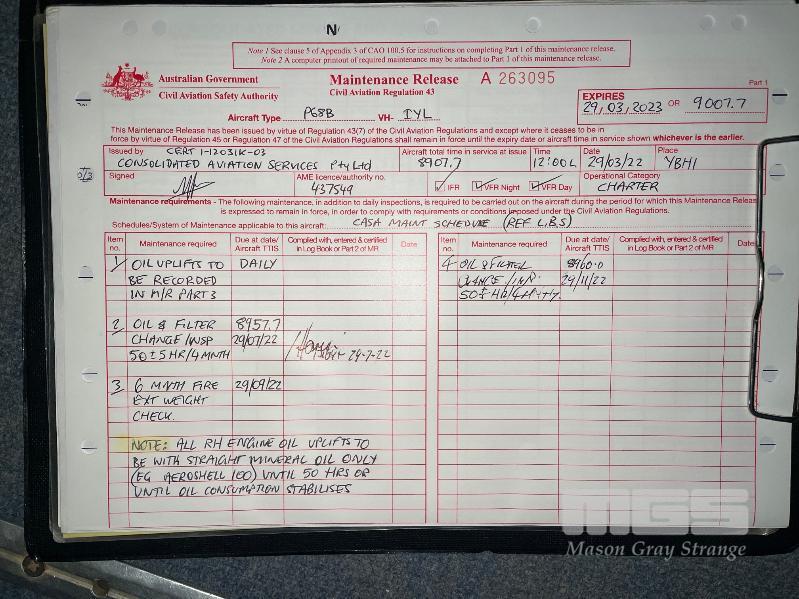 N
Note 1 See clause 5 of Appendix 3 of CAO 100.5 for instructions on completing Part 1 of this maintenance release.
Note 2 A computer printout of maintenance may be attached to Part 1 of this maintenance release.
Australian Government
Civil Aviation Safety Authority
Maintenance Release
Civil Aviation Regulation 43
A 263095
Part 1
EXPIRES
29/03/2023 OR 9007.7
Aircraft Type P68B VH- IYL
This Maintenance Release has been issued by virtue of Regulation 43(7) of the Civil Aviation Regulations and except where it ceases to be in
force by virtue of Regulation 45 or Regulation 47 of the Civil Aviation Regulations shall remain in force until the expiry date or aircraft time in service shown whichever is the earlier.
Issued by CERT 1-12031K-03
CONSOLIDATED AVIATION SERVICES Pty Ltd
Aircraft total time in service at issue
8907.7
Time
12:00L
Date
29/03/22
Place
YBHI
Signed
AME licence/authority no.
437549
IFR VFR Night VFR Day
Operational Category
CHARTER
Maintenance requirements - The following maintenance, in addition to daily inspections, is required to be carried out on the aircraft during the period for which this Maintenance Release
is expressed to remain in force, in order to comply with requirements or conditions imposed under the Civil Aviation Regulations.
Schedules/System of Maintenance applicable to this aircraft: CASA MAINT SCHEDULE (REF L.B.S)
Item no. Maintenance required Due at date/ Aircraft TTIS Complied with, entered & certified in Log Book or Part 2 of MR Date
Item no. Maintenance required Due at date/ Aircraft TTIS Complied with, entered & certified in Log Book or Part 2 of MR Date
1 OIL UPLIFTS TO DAILY
BE RECORDED
IN M/R PART 3
2 OIL & FILTER 8957.7
CHANGE/INSP 29/07/22
50±5HR/4MNTH 29-7-22
3 6 MNTH FIRE 29/09/22
EXT WEIGHT
CHECK.
NOTE: ALL RH ENGINE OIL UPLIFTS TO
BE WITH STRAIGHT MINERAL OIL ONLY
(EG AEROSHELL 100) UNTIL 50 HRS OR
UNTIL OIL CONSUMPTION STABILISES
4 OIL & FILTER 8960.0
29/11/22
MGS
Mason Gray Strange